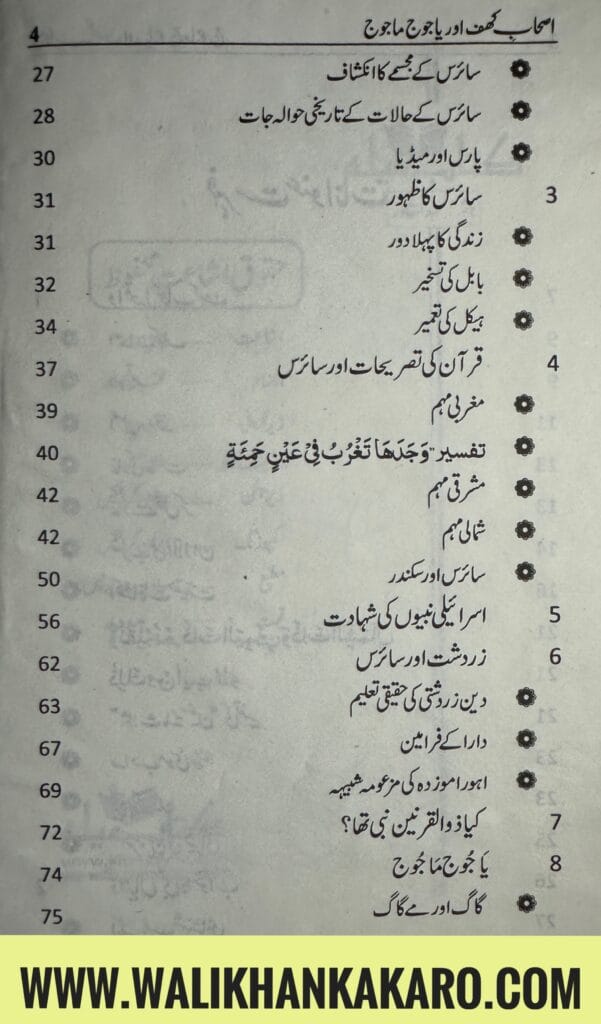 اصحاب کھف اور یاجوج ماجوج 4
سائرس کے مجسمے کا انکشاف 27
سائرس کے حالات کے تاریخی حوالہ جات 28
پارس اور میڈیا 30
3 سائرس کا ظہور 31
زندگی کا پہلا دور 31
بابل کی تسخیر 32
ہیکل کی تعمیر 34
4 قرآن کی تصریحات اور سائرس 37
مغربی مہم 39
تفسیر "وَجَدَهَا تَغْرُبُ فِيْ عَيْنٍ حَمِئَةٍ 40
مشرقی مہم 42
شمالی مہم 42
سائرس اور سکندر 50
5 اسرائیلی نبیوں کی شہادت 56
6 زردشت اور سائرس 62
دین زردشتی کی حقیقی تعلیم 63
دارا کے فرامین 67
اہورا موزدہ کی مزعومہ شبیہہ 69
7 کیا ذوالقرنین نبی تھا؟ 72
8 یَاجُوج مَاجُوج 74
گاگ اور مے گاگ 75
WWW.WALIKHANKAKARO.COM